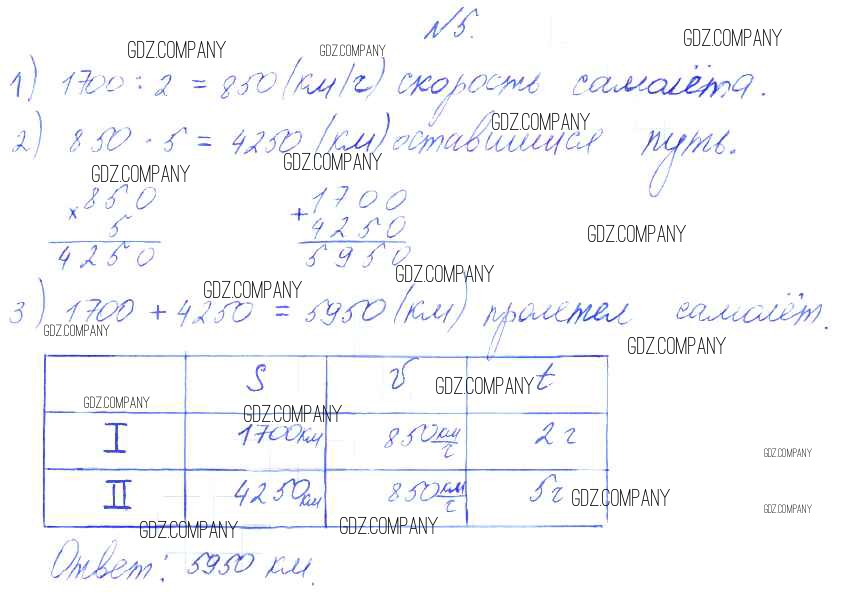 №5.
GDZ.COMPANY GDZ.COMPANY GDZ.COMPANY
1) 1700 : 2 = 850 (км/ч) скорость самолёта.
GDZ.COMPANY
2) 850 · 5 = 4250 (км) оставшийся путь.
GDZ.COMPANY GDZ.COMPANY
× 850 + 1700
5 4250
GDZ.COMPANY
4250 5950
GDZ.COMPANY
GDZ.COMPANY
3) 1700 + 4250 = 5950 (км) пролетел самолёт.
GDZ.COMPANY GDZ.COMPANY
S v t
GDZ.COMPANY
GDZ.COMPANY GDZ.COMPANY
I 1700 км 850 км/ч 2 ч
GDZ.COMPANY
II 4250 км 850 км/ч 5 ч
GDZ.COMPANY GDZ.COMPANY
GDZ.COMPANY GDZ.COMPANY
Ответ: 5950 км.